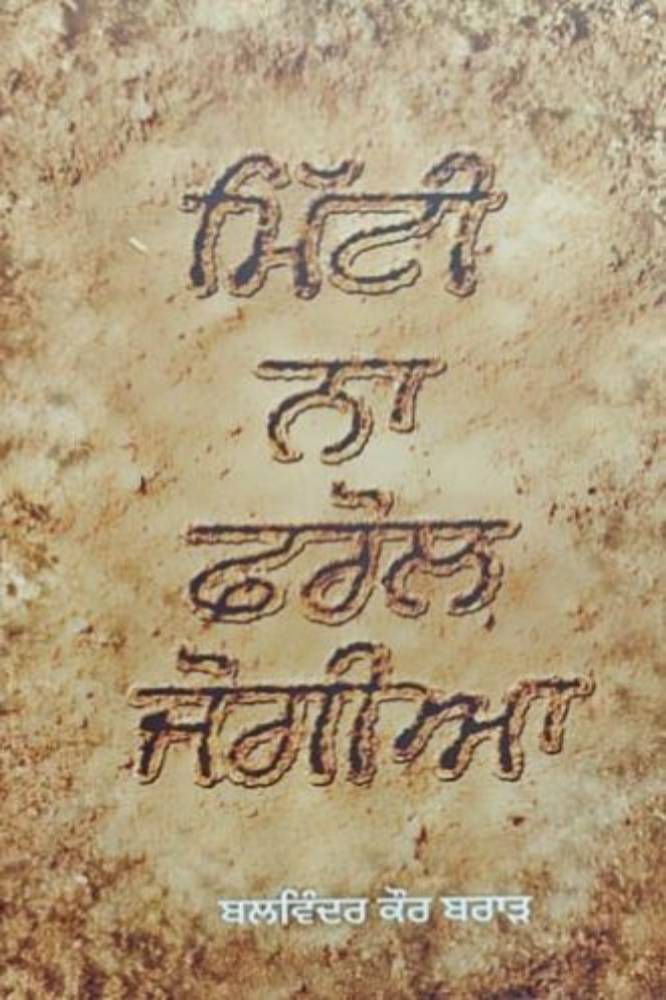 ਮਿੱਟੀ
ਨਾ
ਫਰੋਲ
ਜੋਗੀਆ
ਬਲਵਿੰਦਰ ਕੌਰ ਬਰਾੜ